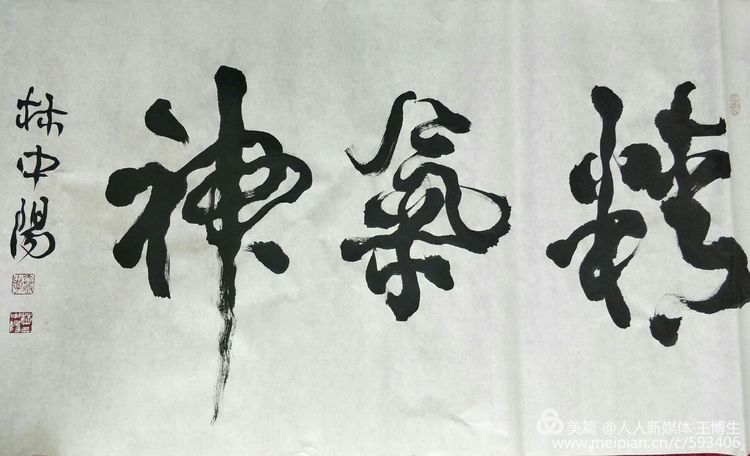 精氣神
林中陽
美篇 @人人新媒体·王博生
www.meipian.cn/c/593406